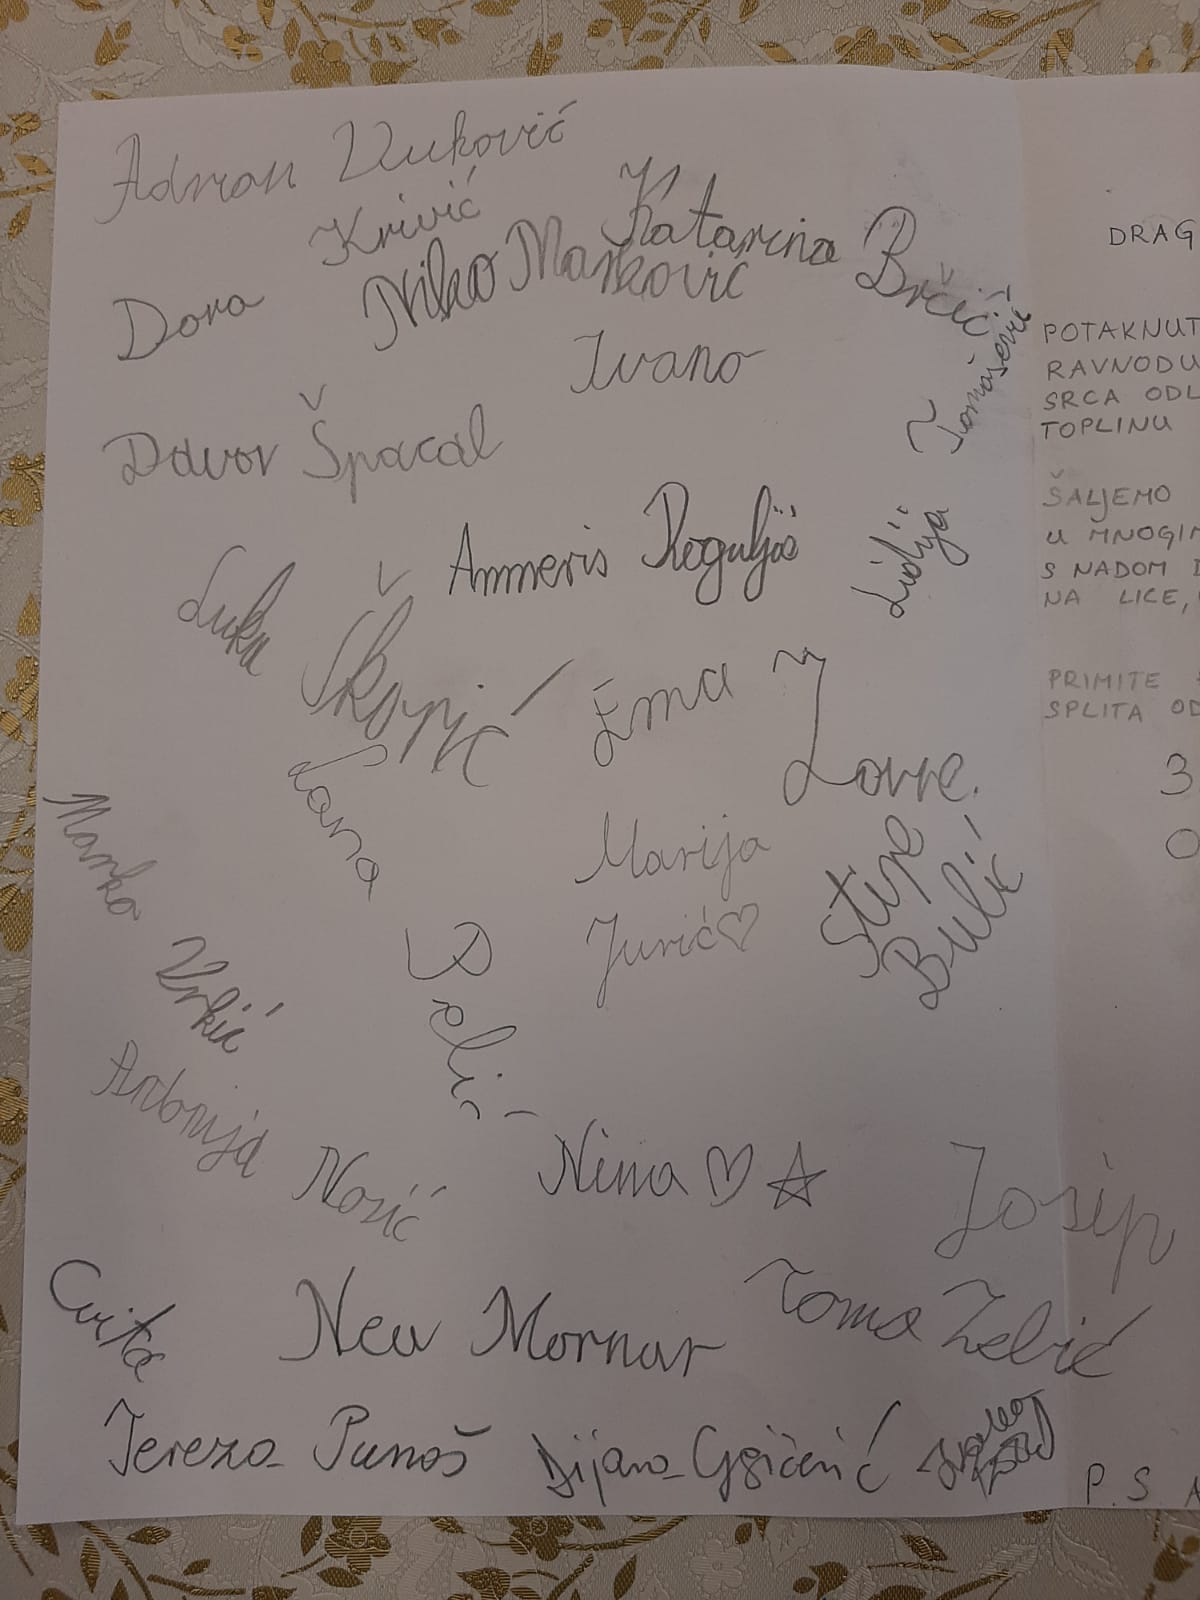 Adrian Vuković
Dora Krivić
Niko Marković
Katarina Brčić
Ivano
Lidija Tomašević
Davor Špacal
Ammeris Roguljić
Luka Škopić
Ema
Lovre.
Lana Prelić
Marija
Jurić♡
Stipe
Bulić
Marko Vrkić
Antonija Nosić
Nina ♡ ☆
Josip
Cvita
Nea Mornar
Toma Zebić
Tereza Punoš
Dijana
DRAG
POTAKNUT
RAVNODU
SRCA ODL
TOPLINU
ŠALJEMO
U MNOGIM
S NADOM
NA LICE,
PRIMITE
SPLITA OD
3
O
P.S A